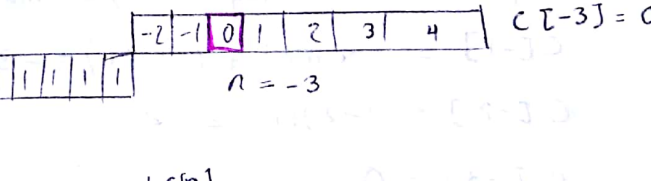 -2 -1 0 1 2 3 4 C[-3] =
1 1 1 1
n = -3